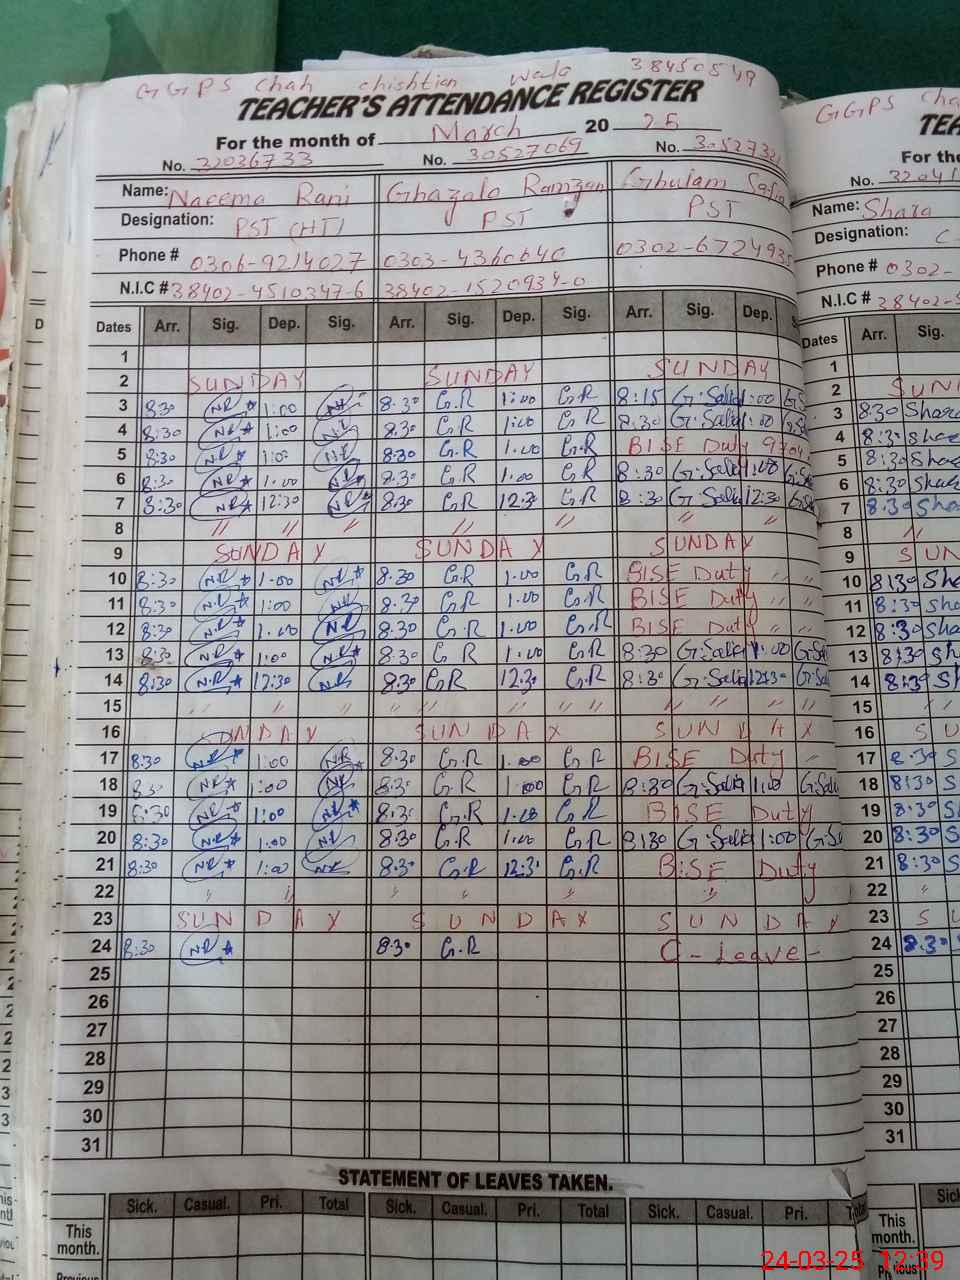 GGPS Chah chishtian wala 38450549
TEACHER'S ATTENDANCE REGISTER
For the month of March 20 25
No. 32036733 No. 30527069 No. 3052732
Name: Naeema Rani Ghazala Ramzan Ghulam
Designation: PST (HT) PST PST
Phone # 0306-9214027 0303-4360640 0302-6724935
N.I.C # 38402-4510347-6 38402-1520934-0
Dates Arr. Sig. Dep. Sig. Arr. Sig. Dep. Sig. Arr. Sig. Dep. S
1
2 SUNDAY SUNDAY SUNDAY
3 8:30 NR 1:00 NR 8:30 G.R 1:00 G.R 8:15 G.Safia 1:00 GS
4 8:30 NR 1:00 NR 8:30 G.R 1:00 G.R 8:30 G.Safia 1:00 G.S
5 8:30 NR 1:00 NR 8:30 G.R 1:00 G.R BISE Duty
6 8:30 NR 1:00 NR 8:30 G.R 1:00 G.R 8:30 G.Safia 1:00 G.S
7 8:30 NR 12:30 NR 8:30 G.R 12:30 G.R 8:30 G.Safia 12:30 G.S
8 " " " " " " "
9 SUNDAY SUNDAY SUNDAY
10 8:30 NR 1:00 NR 8:30 G.R 1:00 G.R BISE Duty " "
11 8:30 NR 1:00 NR 8:30 G.R 1:00 G.R BISE Duty " "
12 8:30 NR 1:00 NR 8:30 G.R 1:00 G.R BISE Duty " "
13 8:30 NR 1:00 NR 8:30 G.R 1:00 G.R 8:30 G.Safia 1:00 G.Sa
14 8:30 NR 12:30 NR 8:30 G.R 12:30 G.R 8:30 G.Safia 12:30 G.Sa
15 " " " " " " " " " " "
16 UNDAY SUNDAY SUNDAY
17 8:30 NR 1:00 NR 8:30 G.R 1:00 G.R BISE Duty "
18 8:30 NR 1:00 NR 8:30 G.R 1:00 G.R 8:30 G.Safia 1:00 G.Sa
19 8:30 NR 1:00 NR 8:30 G.R 1:00 G.R BISE Duty
20 8:30 NR 1:00 NR 8:30 G.R 1:00 G.R 8:30 G.Safia 1:00 G.S
21 8:30 NR 1:00 NR 8:30 G.R 12:30 G.R BISE Duty
22 " " " " " "
23 SUNDAY SUNDAY SUNDAY
24 8:30 NR 8:30 G.R C-Leave-
25
26
27
28
29
30
31
STATEMENT OF LEAVES TAKEN.
Sick. Casual. Pri. Total Sick. Casual. Pri. Total Sick. Casual. Pri. Total
This
month.
Previous
GGPS Cha
TEA
For the
No. 3204
Name: Shara
Designation: C
Phone # 0302-
N.I.C # 38402-
Dates Arr. Sig.
1
2 SUN
3 8:30 Shara
4 8:30 Shar
5 8:30 Sha
6 8:30 Sha
7 8:30 Sha
8 "
9 SUN
10 8:30 Sha
11 8:30 Sha
12 8:30 Sha
13 8:30 Sh
14 8:30 Sh
15 "
16 SU
17 8:30 S
18 8:30 S
19 8:30 S
20 8:30 S
21 8:30 S
22 "
23 SU
24 8:30
25
26
27
28
29
30
31
Sick
This
month.
Previous
24-03-25 12:39